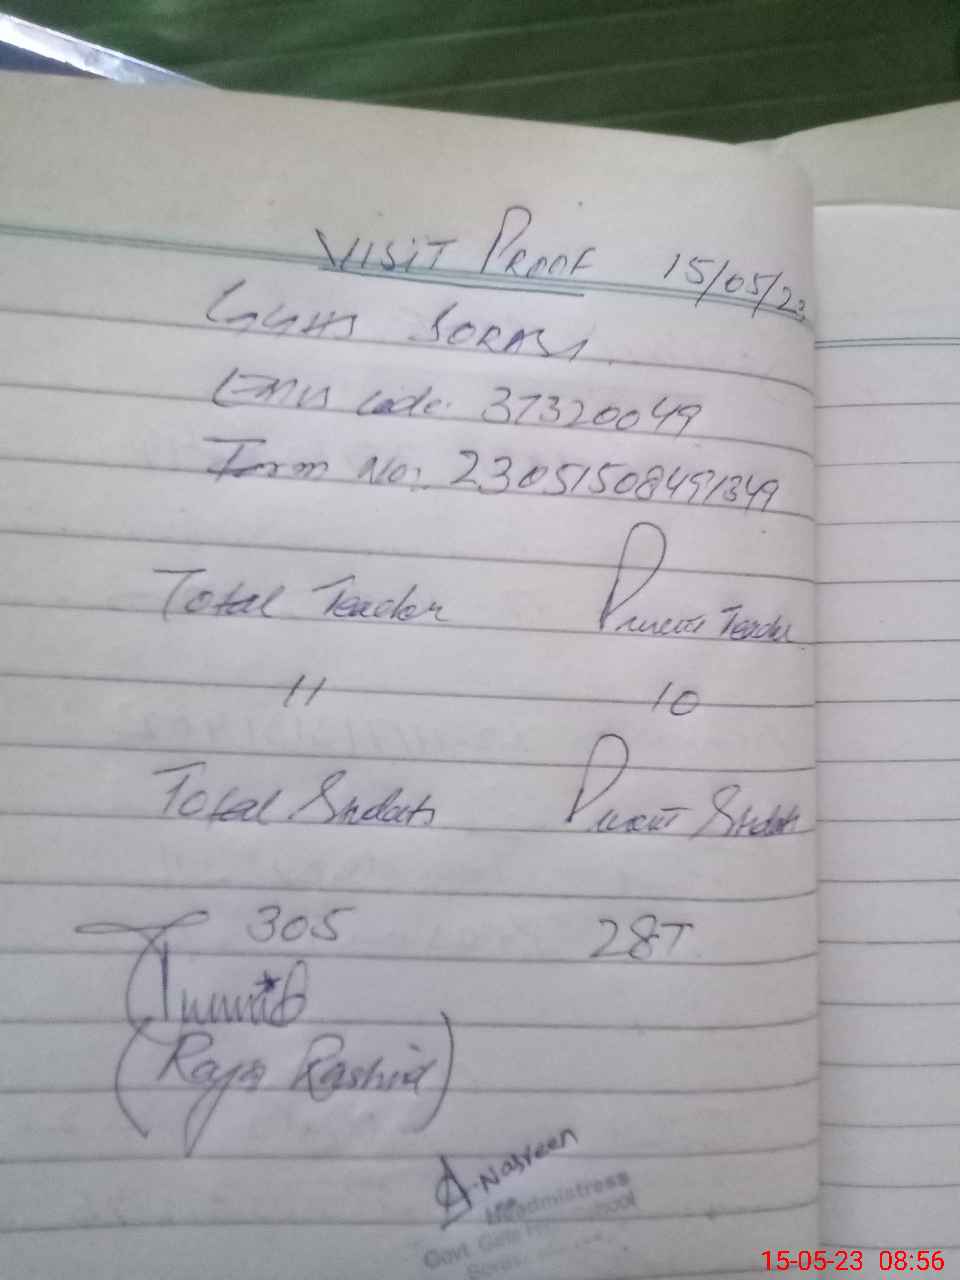 VISIT PROOF 15/05/23
SORASI
EMIS code: 37320049
Form No: 23051508491349
Total Teacher Present Teacher
11 10
Total Students Present Students
305 287
(Raja Rashid)
A-Nasreen
Headmistress
Govt Girls High School
15-05-23 08:56